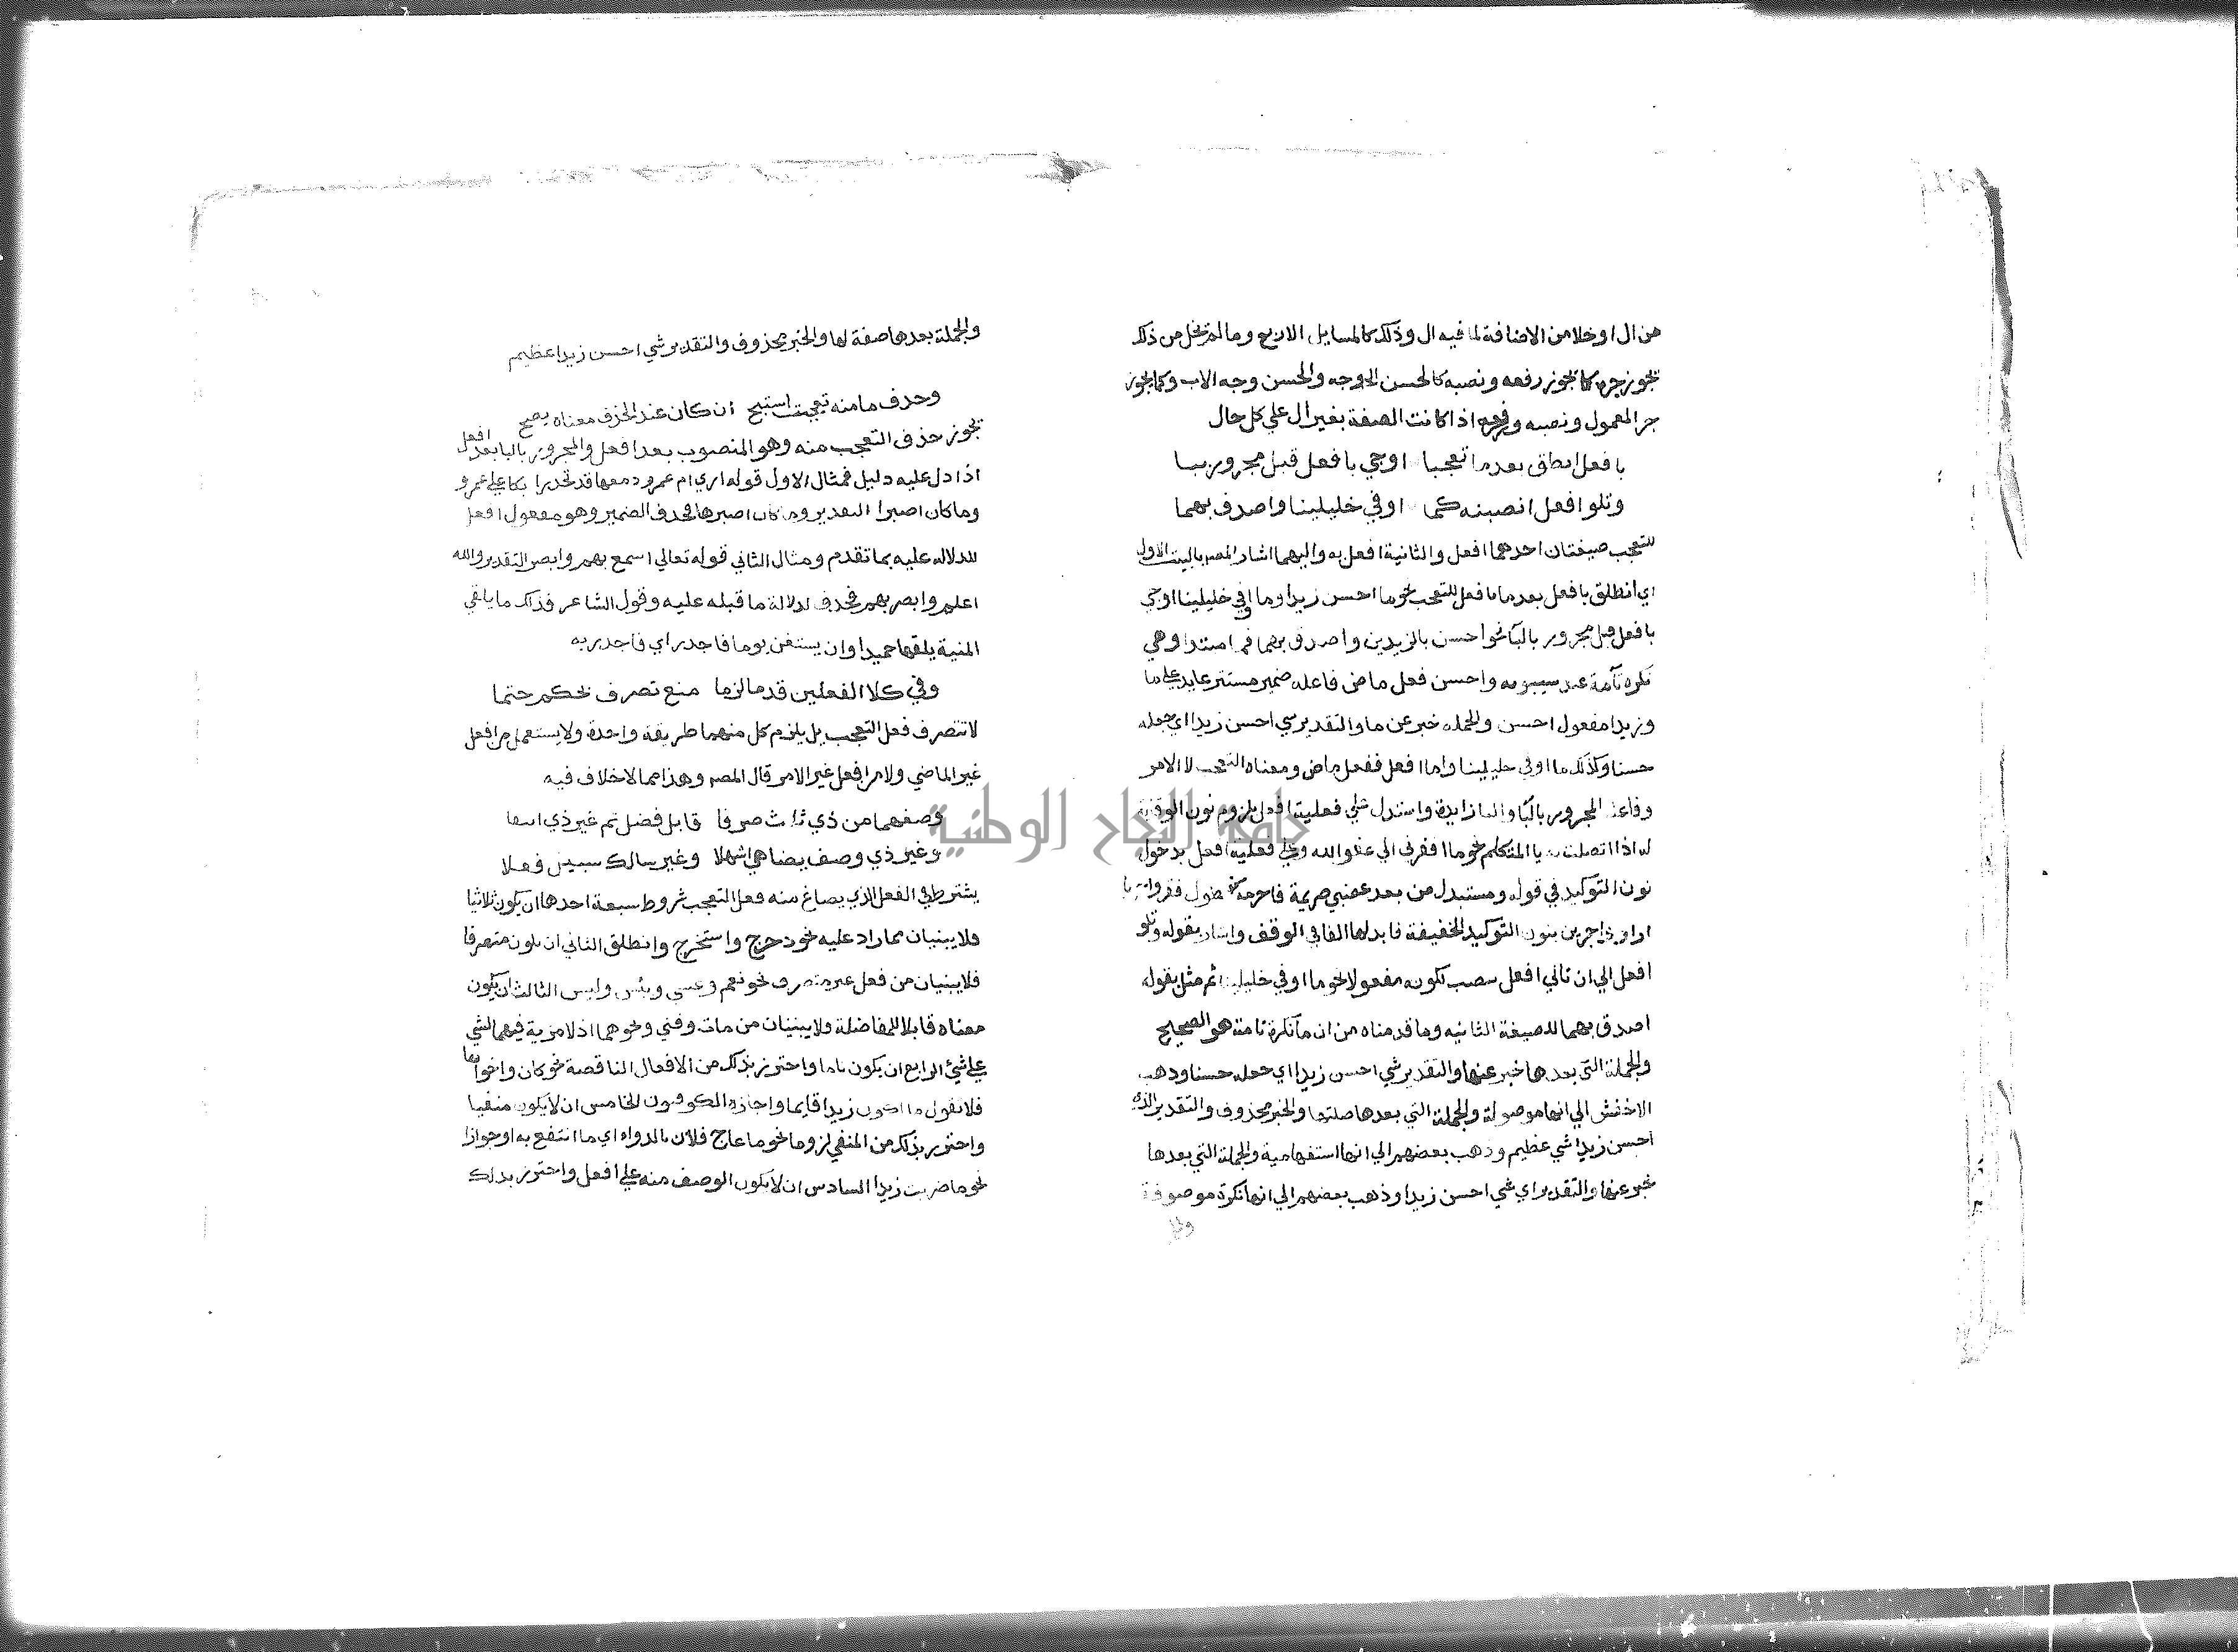 من ال او خلا من الاضافة لما فيه ال وذلك كالمسايل الاربع وما لم يخل من ذلك
يجوز جره كما يجوز رفعه ونصبه كالحسن الوجه والحسن وجه الاب وكما يجوز
جر المعمول ونصبه ورفعه اذا كانت الصفة بغير ال علي كل حال
بافعل انطق بعد ما تعجبا او جي بافعل قبل مجرور ببا
وتلو افعل انصبنه كما اوفي خليلينا واصدف بهما
للتعجب صيغتان احدهما افعل والثانية افعل به واليهما اشار المصه بالبيت الاول
اي انطلق بافعل بعد ما بافعل للتعجب نحو ما احسن زيدا وما اوفي خليلينا او جي
بافعل قبل مجرور بالبا نحو احسن بالزيدين واصدق بهما فما مبتدا وهي
نكره تامة عند سيبويه واحسن فعل ماض فاعله ضمير مستتر عايد علي ما
وزيدا مفعول احسن والجمله خبر عن ما والتقدير شي احسن زيدا اي جعله
حسنا وكذلك ما اوفي خليلينا واما افعل ففعل ماض ومعناه التعجب لا الامر
وفاعله المجرور بالبا والبا زايدة واستدل علي فعلية افعل بلزوم نون الوقاية
له اذا اتصلت به يا المتكلم نحو ما افقرني الي عفو الله وعلي فعلية افعل بدخول
نون التوكيد في قوله ومستبدل من بعد غضبي صريمة فاحر به طول فقر واحريا
اراد واحرين بنون التوكيد الخفيفة فابدلها الفا في الوقف واشار بقوله وتلو
افعل الي ان تالي افعل ينصب لكونه مفعولا نحو ما اوفي خليلينا ثم مثل بقوله
اصدق بهما للصيغة الثانيه وما قدمناه من ان ما نكرة تامة هو الصحيح
والجملة التي بعدها خبر عنها والتقدير شي احسن زيدا اي جعله حسنا وذهب
الاخفش الي انها موصولة والجملة التي بعدها صلتها والخبر محذوف والتقدير الذي
احسن زيدا شي عظيم وذهب بعضهم الي انها استفهامية والجملة التي بعدها
خبر عنها والتقدير اي شي احسن زيدا وذهب بعضهم الي انها نكرة موصوفة
والجملة بعدها صفة لها والخبر محذوف والتقدير شي احسن زيدا عظيم
وحذف ما منه تعجبت استبح ان كان عند الحذف معناه يصح
يجوز حذف التعجب منه وهو المنصوب بعد افعل والمجرور بالبا بعد افعل
اذا دل عليه دليل فمثال الاول قوله اري ام عمرو دمعها قد تحدرا بكا علي عمرو
وما كان اصبرا التقدير وما كان اصبرها فحذف الضمير وهو مفعول افعل
للدلاله عليه بما تقدم ومثال الثاني قوله تعالي اسمع بهم وابصر التقدير والله
اعلم وابصر بهم فحذف لدلالة ما قبله عليه وقول الشاعر فذلك ما يلقي
المنية يلقها حميدا وان يستغن يوما فاجدر اي فاجدر به
وفي كلا الفعلين قدما لزما منع تصرف بحكم حتما
لا تتصرف فعل التعجب بل يلزم كل منهما طريقة واحدة ولا يستعمل من افعل
غير الماضي ولا من افعل غير الامر قال المصه وهذا مما لا خلاف فيه
وصغهما من ذي ثلاث صرفا قابل فضل تم غير ذي انتفا
وغير ذي وصف يضاهي اشهلا وغير سالك سبيل فعلا
يشترط في الفعل الذي يصاغ منه فعل التعجب شروط سبعة احدها ان يكون ثلاثيا
فلا يبنيان مما زاد عليه نحو دحرج واستخرج وانطلق الثاني ان يكون متصرفا
فلا يبنيان من فعل غير متصرف نحو نعم وعسي وبئس وليس الثالث ان يكون
معناه قابلا للمفاضلة ولا يبنيان من مات وفني ونحوهما اذ لا مزية فيهما لشي
علي شئ الرابع ان يكون تاما واحترز بذلك من الافعال الناقصة نحو كان واخواتها
فلا تقول ما اكون زيدا قايما واجازه الكوفيون الخامس ان لا يكون منفيا
واحترز بذلك من المنفي لزوما نحو ما عاج فلان بالدواء اي ما انتفع به او جوازا
نحو ما ضربت زيدا السادس ان لا يكون الوصف منه علي افعل واحترز بذلك
جامعة النجاح الوطنية